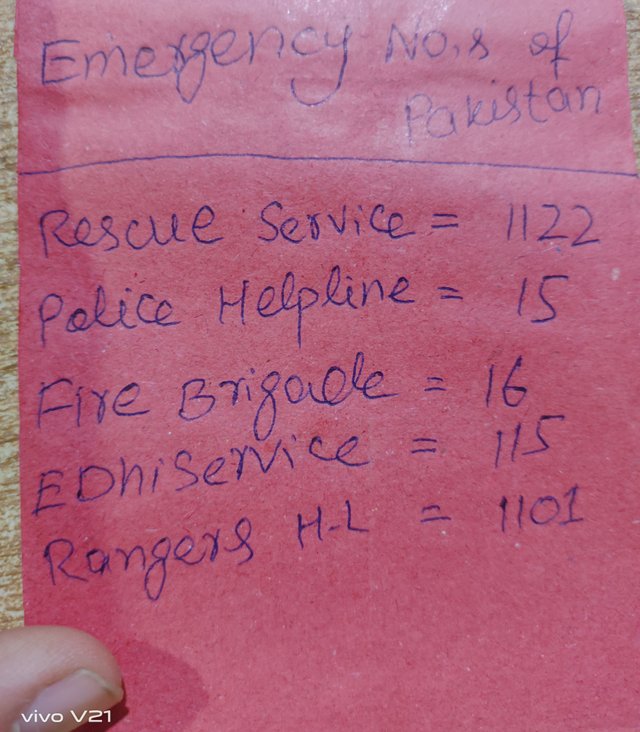 Emergency No,s of
Pakistan
Rescue Service = 1122
Police Helpline = 15
Fire Brigade = 16
EDhi Service = 115
Rangers H-L = 1101
vivo V21